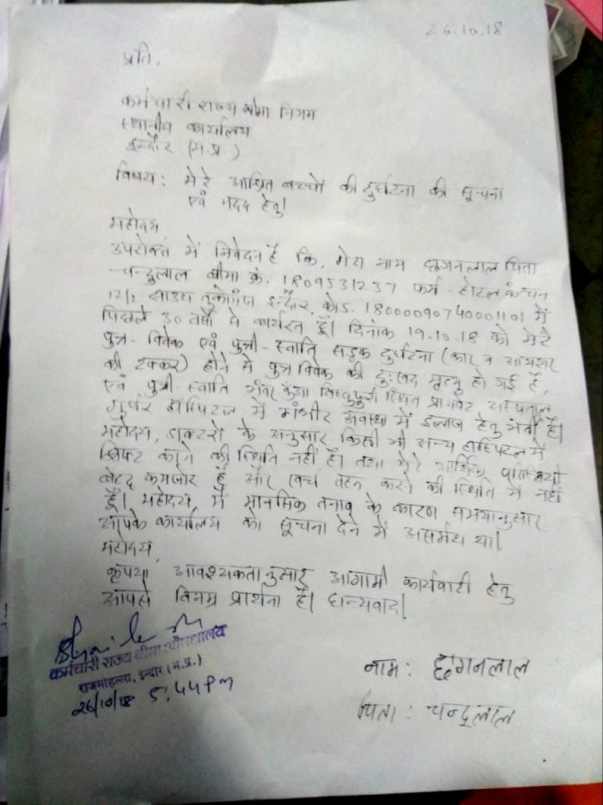 26.10.18
प्रति,
कर्मचारी राज्य बीमा निगम
स्थानीय कार्यालय
इन्दौर (म.प्र.)
विषय: मेरे आश्रित बच्चों की दुर्घटना की सूचना
एवं मदद हेतु।
महोदय,
उपरोक्त में निवेदन है कि, मेरा नाम छगनलाल पिता
चन्दुलाल बीमा क्रं. 1809531237 फर्म - होटल कंचन
12/2 साउथ तुकोगंज इन्दौर, कोड. 18000090740001101 में
पिछले 30 वर्षों से कार्यरत हूँ। दिनांक 19.10.18 को मेरे
पुत्र - विवेक एवं पुत्री - स्वाति सड़क दुर्घटना (कार व आयशर
की टक्कर) होने से पुत्र विवेक की दुःखद मृत्यु हो गई है,
एवं पुत्री स्वाति स्थित प्रायवेट अस्पताल
गुर्जर हास्पिटल में गंभीर अवस्था में इलाज हेतु भर्ती है।
महोदय, डाक्टरों के अनुसार किसी भी अन्य हास्पिटल में
शिफ्ट करने की स्थिति नहीं है। तथा मेरी आर्थिक
बेहद कमजोर है और खर्च वहन करने की स्थिति में नहीं
हूँ। महोदय, मैं मानसिक तनाव के कारण समयानुसार
आपके कार्यालय को सूचना देने में असमर्थ था।
महोदय,
कृपया आवश्यकतानुसार आगामी कार्यवाही हेतु
आपसे विनम्र प्रार्थना है। धन्यवाद।
कर्मचारी राज्य बीमा औषधालय
इन्दौर (म.प्र.)
26/10/18 5:44 Pm
नाम: छगनलाल
पिता: चन्दुलाल